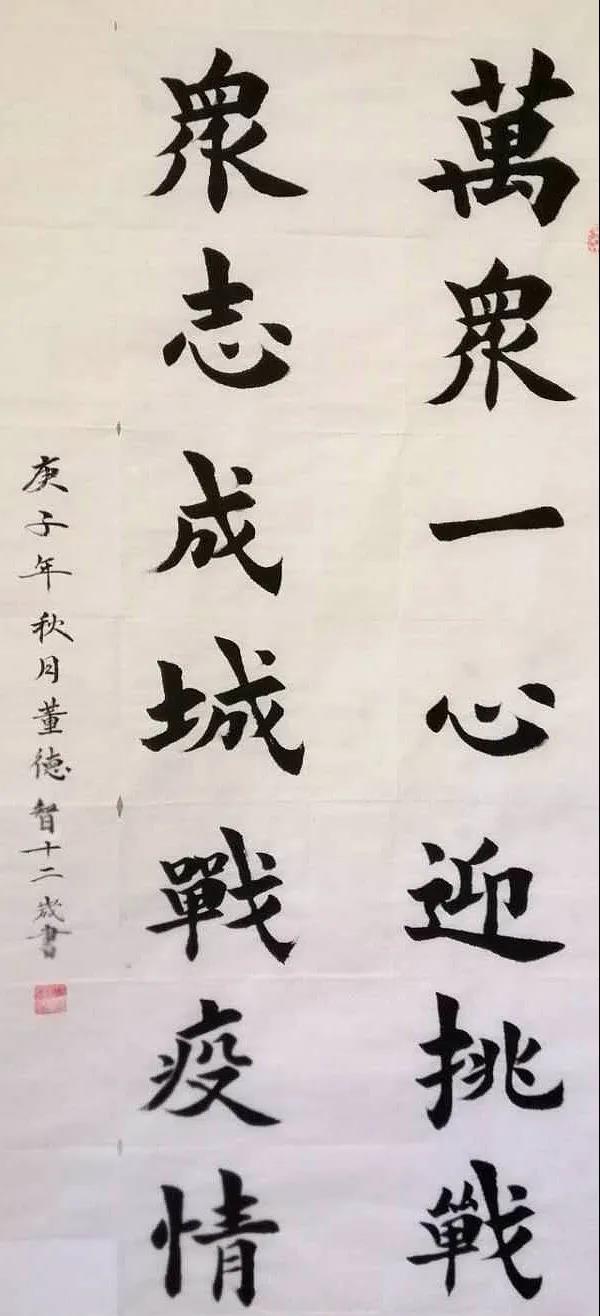 萬眾一心迎挑戰
眾志成城戰疫情
庚子年秋月董德智十二歲書